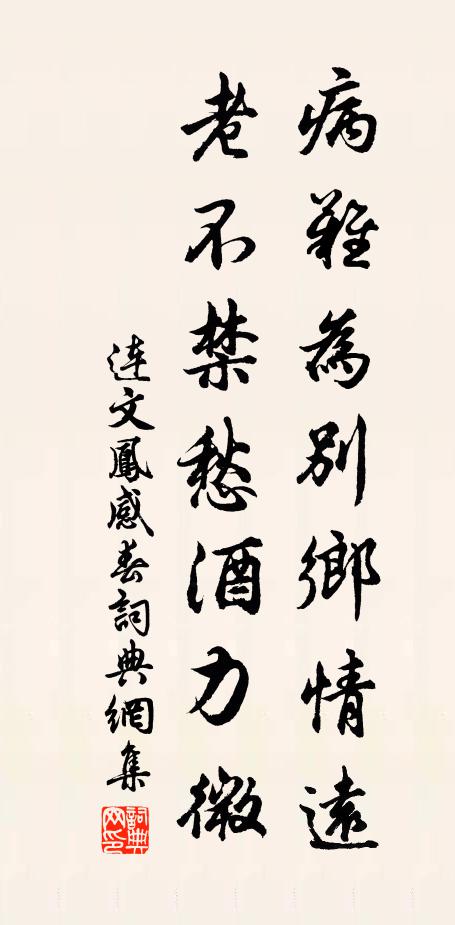 病難為別鄉情遠
老不禁愁酒力微
連文鳳感春詞典網集
詞典網印